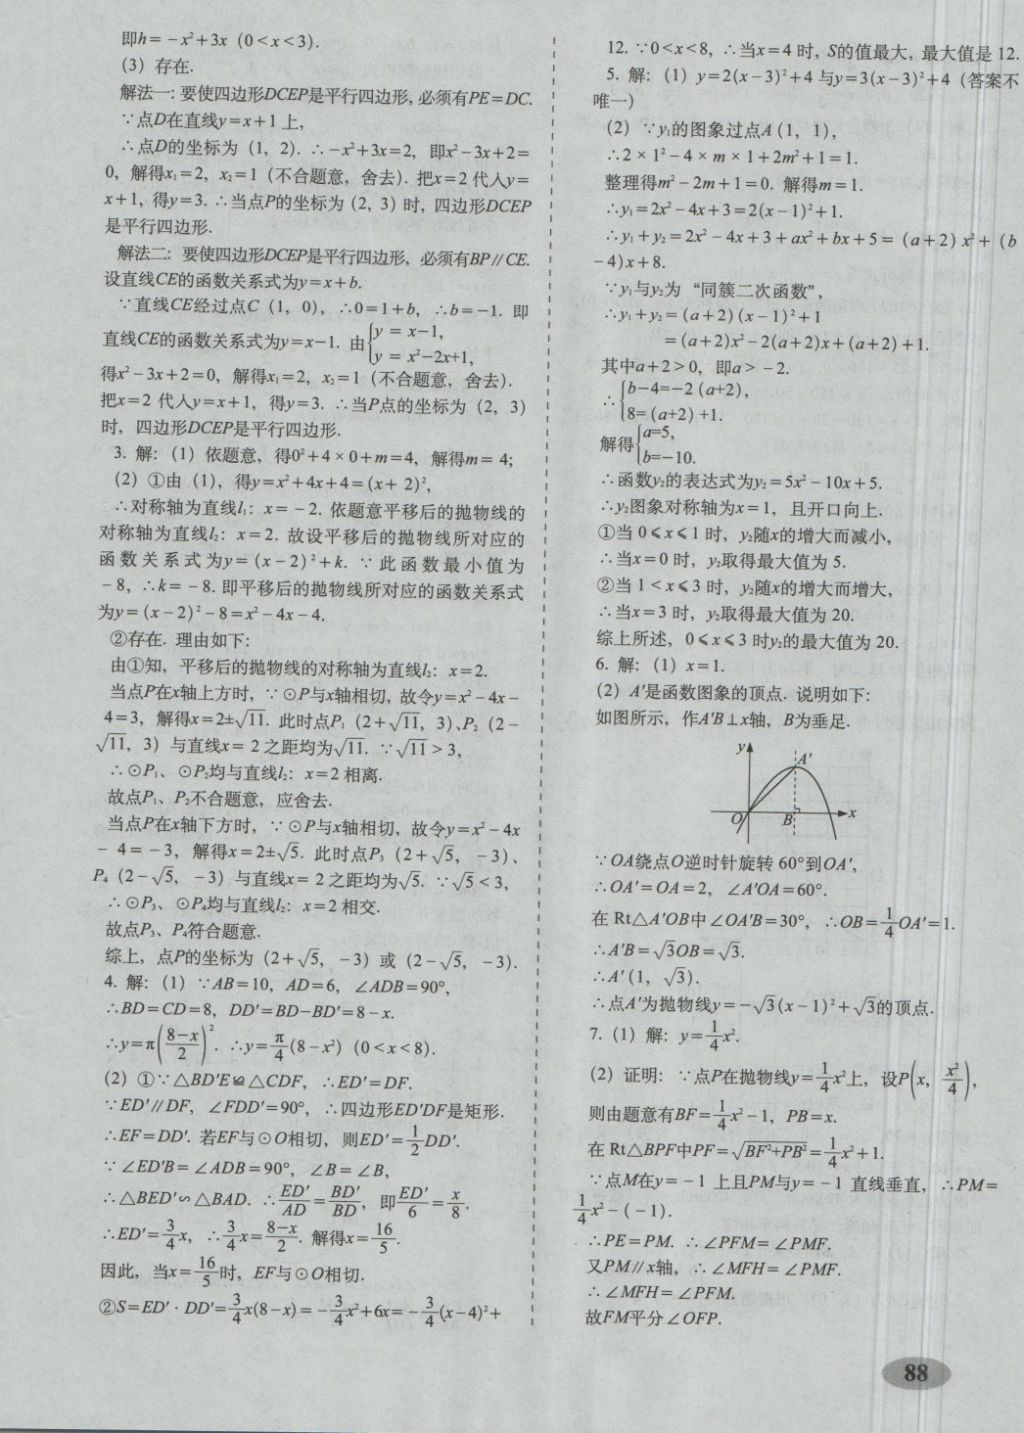 即h=-x²+3x (0<x<3).
(3) 存在.
解法一: 要使四边形DCEP是平行四边形, 必须有PE=DC.
∵点D在直线y=x+1上,
∴点D的坐标为 (1, 2). ∴-x²+3x=2, 即x²-3x+2=
0, 解得x₁=2, x₂=1 (不合题意, 舍去). 把x=2 代入y=
x+1, 得y=3. ∴当点P的坐标为 (2, 3) 时, 四边形DCEP
是平行四边形.
解法二: 要使四边形DCEP是平行四边形, 必须有BP∥CE.
设直线CE的函数关系式为y=x+b.
∵直线CE经过点C (1, 0), ∴0=1+b, ∴b=-1. 即
直线CE的函数关系式为y=x-1. 由{y = x-1, y = x²-2x+1,
得x²-3x+2=0, 解得x₁=2, x₂=1 (不合题意, 舍去).
把x=2 代入y=x+1, 得y=3. ∴当P点的坐标为 (2, 3)
时, 四边形DCEP是平行四边形.
3. 解: (1) 依题意, 得0²+4×0+m=4, 解得m= 4;
(2) ①由 (1), 得y=x²+4x+4=(x+ 2)²,
∴对称轴为直线l₁: x=-2. 依题意平移后的抛物线的
对称轴为直线l₂: x=2. 故设平移后的抛物线所对应的
函数关系式为y=(x-2)²+k. ∵此函数最小值为
-8, ∴k=-8. 即平移后的抛物线所对应的函数关系式
为y=(x-2)²-8=x²-4x-4.
②存在. 理由如下:
由①知, 平移后的抛物线的对称轴为直线l₂: x=2.
当点P在x轴上方时, ∵⊙P与x轴相切, 故令y=x²-4x-
4=3, 解得x=2±√11. 此时点P₁ (2+√11, 3)、P₂ (2-
√11, 3) 与直线x= 2 之距均为√11. ∵√11>3,
∴⊙P₁、⊙P₂均与直线l₂: x=2 相离.
故点P₁、P₂不合题意, 应舍去.
当点P在x轴下方时, ∵⊙P与x轴相切, 故令y=x²-4x
- 4=-3, 解得x=2±√5. 此时点P₃ (2+√5, -3)、
P₄ (2-√5, -3) 与直线x= 2 之距均为√5. ∵√5<3,
∴⊙P₃、⊙P₄均与直线l₂: x=2 相交.
故点P₃、P₄符合题意.
综上, 点P的坐标为 (2+√5, -3) 或 (2-√5, -3).
4. 解: (1) ∵AB=10, AD=6, ∠ADB=90°,
∴BD=CD=8, DD′=BD-BD′=8-x.
∴y=π((8-x)/2)². ∴y=π/4(8-x²) (0<x<8).
(2) ①∵△BD′E≌△CDF, ∴ED′=DF.
∵ED′∥DF, ∠FDD′=90°, ∴四边形ED′DF是矩形.
∴EF=DD′. 若EF与⊙O相切, 则ED′=1/2DD′.
∵∠ED′B=∠ADB=90°, ∠B=∠B,
∴△BED′∽△BAD. ∴ED′/AD=BD′/BD, 即ED′/6=x/8.
∴ED′=3/4x, ∴3/4x=(8-x)/2. 解得x=16/5.
因此, 当x=16/5时, EF与⊙O相切.
②S=ED′·DD′=3/4x(8-x)=-3/4x²+6x=-3/4(x-4)²+
12. ∵0<x<8, ∴当x=4 时, S的值最大, 最大值是 12.
5. 解: (1) y=2(x-3)²+4与y=3(x-3)²+4 (答案不
唯一)
(2) ∵y₁的图象过点A (1, 1),
∴2×1²-4×m×1+2m²+1=1.
整理得m²-2m+1=0. 解得m=1.
∴y₁=2x²-4x+3=2(x-1)²+1.
∴y₁+y₂=2x²-4x+3+ax²+bx+5= (a+2) x²+ (b
-4)x+8.
∵y₁与y₂为 “同簇二次函数”,
∴y₁+y₂=(a+2)(x-1)²+1
=(a+2)x²-2(a+2)x+(a+2)+1.
其中a+2>0, 即a>-2.
∴{b-4=-2 (a+2), 8=(a+2)+1.
解得{a=5, b=-10.
∴函数y₂的表达式为y₂=5x²-10x+5.
∴y₂图象对称轴为x=1, 且开口向上.
①当 0⩽x⩽1 时, y₂随x的增大而减小,
∴当x=0 时, y₂取得最大值为 5.
②当 1<x⩽3 时, y₂随x的增大而增大,
∴当x=3 时, y₂取得最大值为 20.
综上所述, 0⩽x⩽3 时y₂的最大值为 20.
6. 解: (1) x=1.
(2) A′是函数图象的顶点. 说明如下:
如图所示, 作A′B⊥x轴, B为垂足.
y
A′
O B x
∵OA绕点O逆时针旋转 60°到OA′,
∴OA′=OA=2, ∠A′OA=60°.
在 Rt△A′OB中∠OA′B=30°, ∴OB=1/4OA′=1.
∴A′B=√3OB=√3.
∴A′(1, √3).
∴点A′为抛物线y=-√3(x-1)²+√3的顶点.
7. (1) 解: y=1/4x².
(2) 证明: ∵点P在抛物线y=1/4x²上, 设P(x, x²/4),
则由题意有BF=1/4x²-1, PB=x.
在 Rt△BPF中PF=√(BF²+PB²)=1/4x²+1.
∵点M在y=-1 上且PM与y=-1 直线垂直, ∴PM=
1/4x²-(-1).
∴PE=PM. ∴∠PFM=∠PMF.
又PM∥x轴, ∴∠MFH=∠PMF.
∴∠MFH=∠PFM.
故FM平分∠OFP.
88